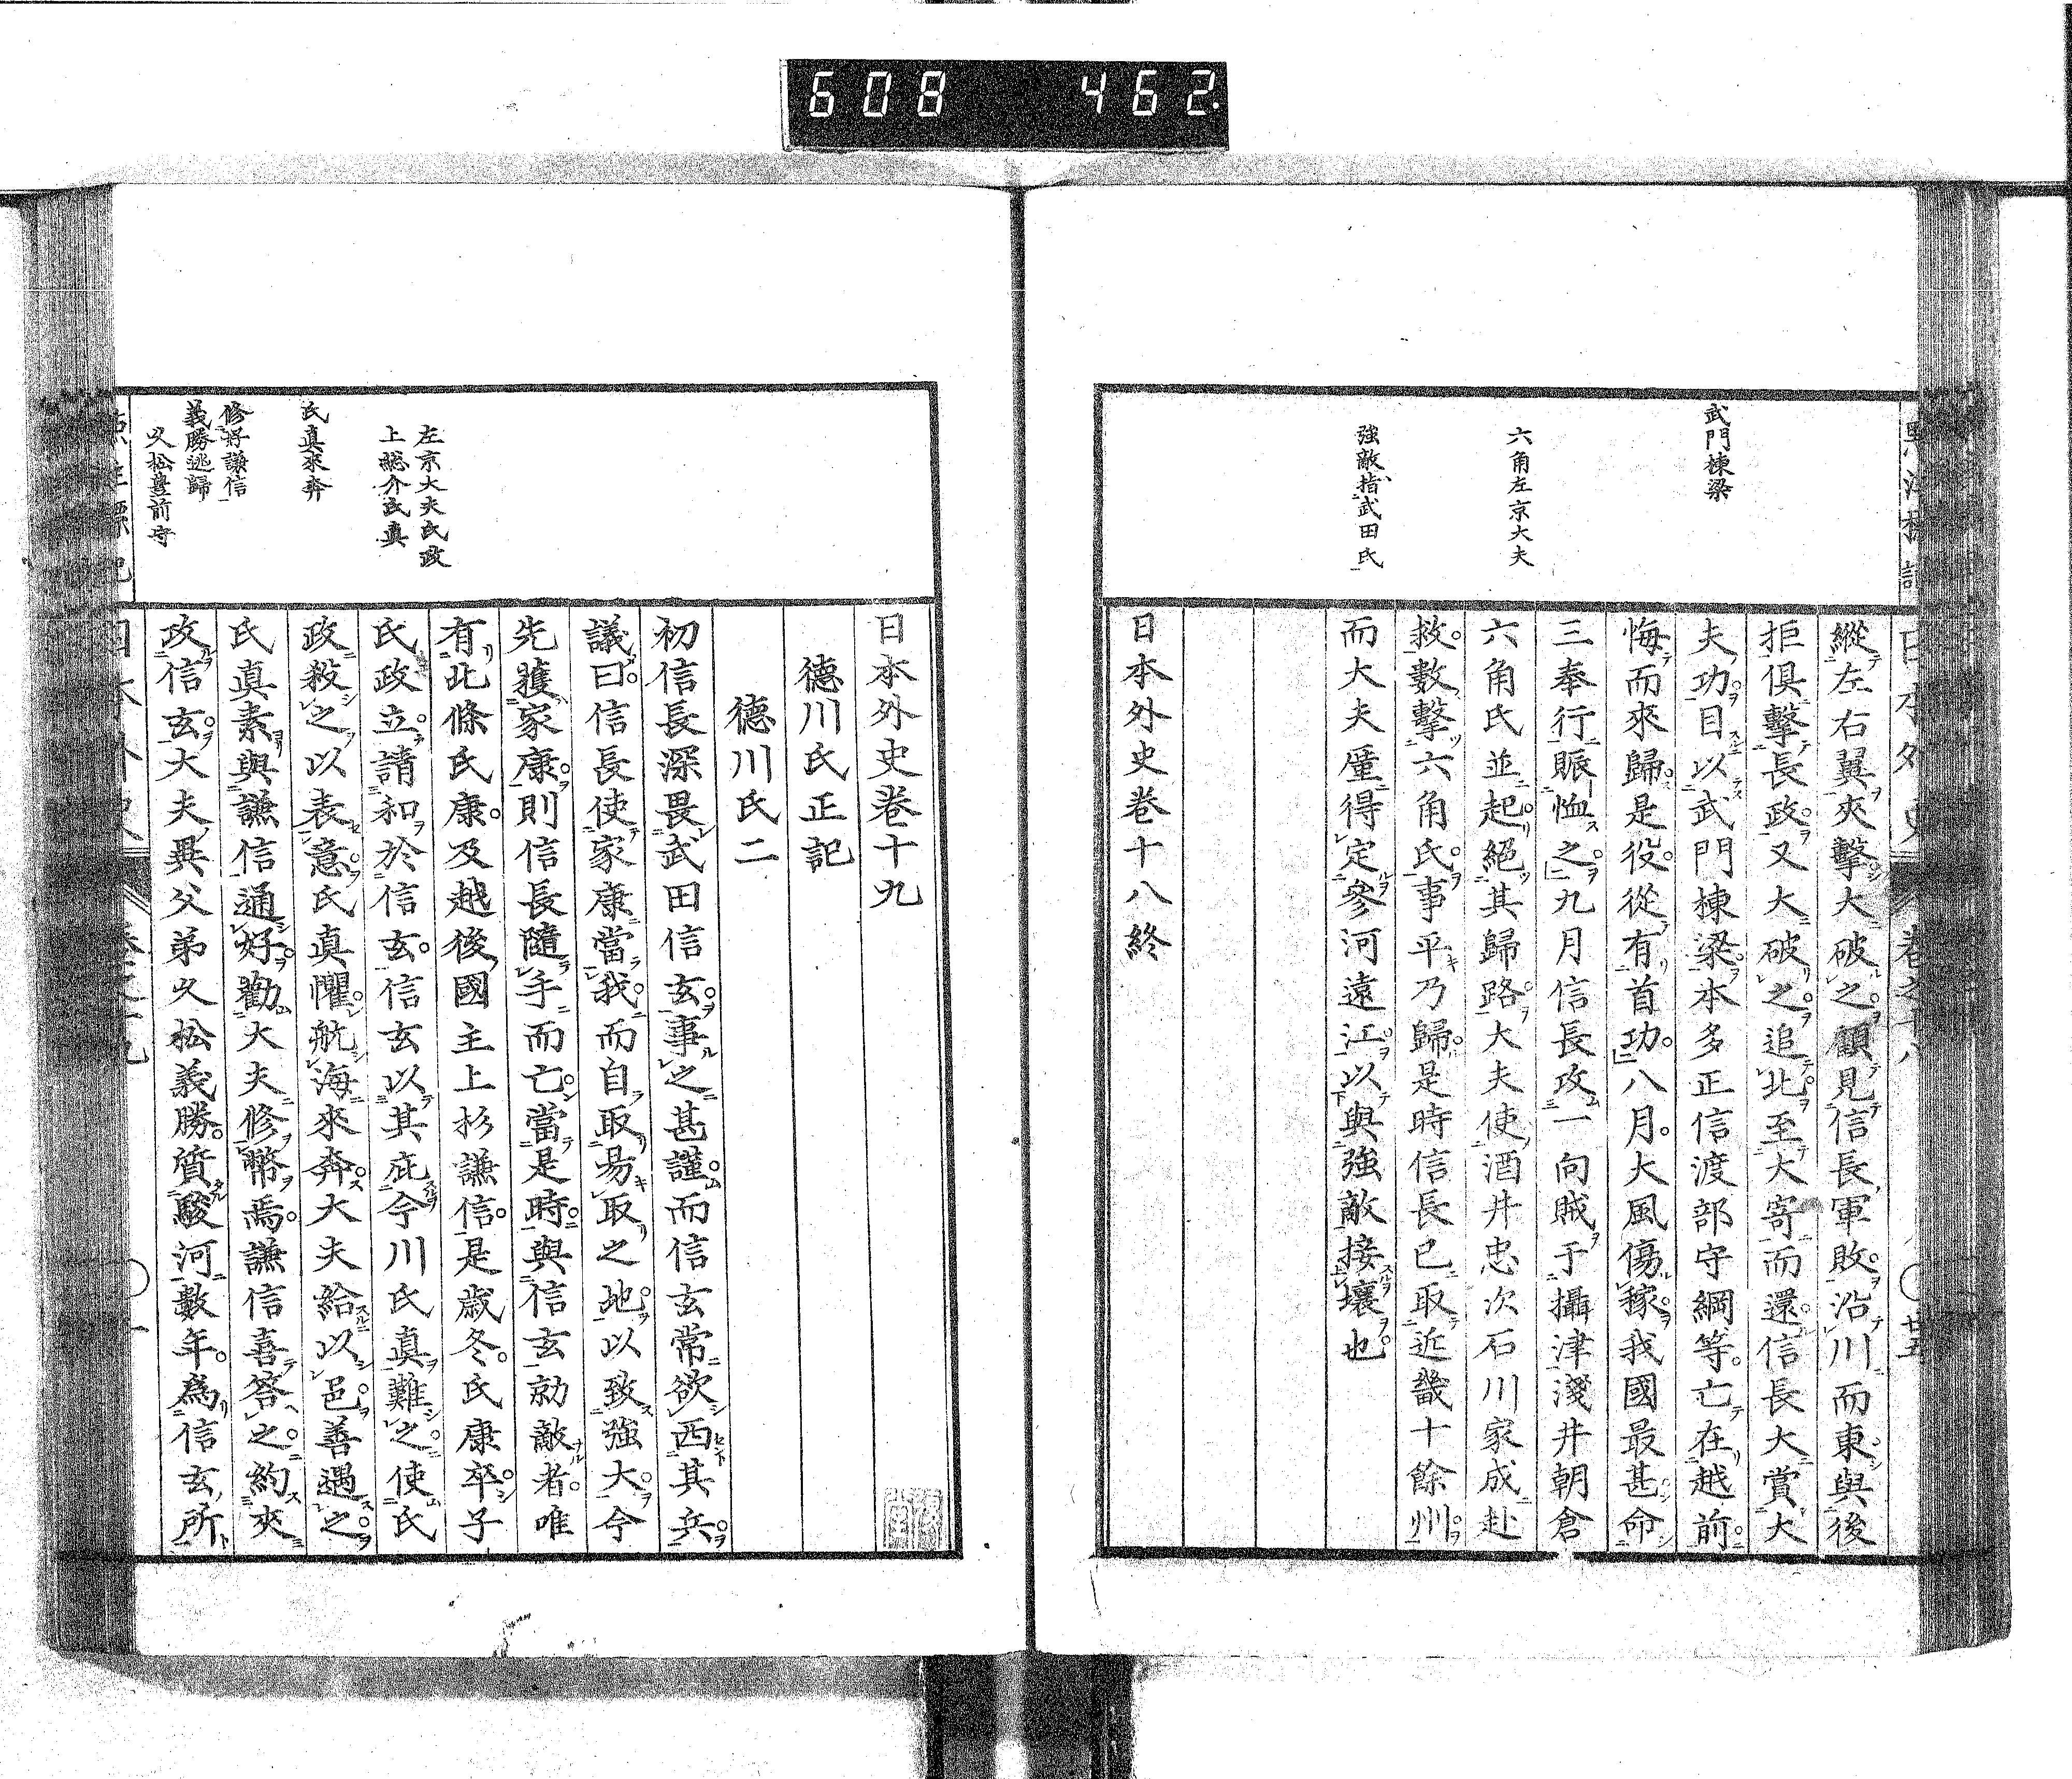 608 462.
武門棟梁
六角左京大夫
強敵指武田氏
縱左右翼夾擊大破之顧見信長軍敗沿川而東與後
拒俱擊長政又大破之追北至大寄而還信長大賞大
夫功目以武門棟梁本多正信渡部守綱等亡在越前
悔而來歸是役從有首功八月大風傷稼我國最甚命
三奉行賑恤之九月信長攻一向賊于攝津淺井朝倉
六角氏並起絕其歸路大夫使酒井忠次石川家成赴
救數擊六角氏事平乃歸是時信長已取近畿十餘州
而大夫厪得定參河遠江以與強敵接壤也
日本外史卷十八終
左京大夫氏政
上總介氏真
氏真來奔
修好謙信
義勝逃歸
久松豊前守
日本外史卷十九
德川氏正記
德川氏二
初信長深畏武田信玄事之甚謹而信玄常欲西其兵
議曰信長使家康當我而自取易取之地以致強大今
先獲家康則信長隨手而亡當是時與信玄勍敵者唯
有北條氏康及越後國主上杉謙信是歲冬氏康卒子
氏政立請和於信玄信玄以其庇今川氏真難之使氏
政殺之以表意氏真懼航海來奔大夫給以邑善遇之
氏真素與謙信通好勸大夫修幣焉謙信喜答之約夾
政信玄大夫異父弟久松義勝質駿河數年為信玄所